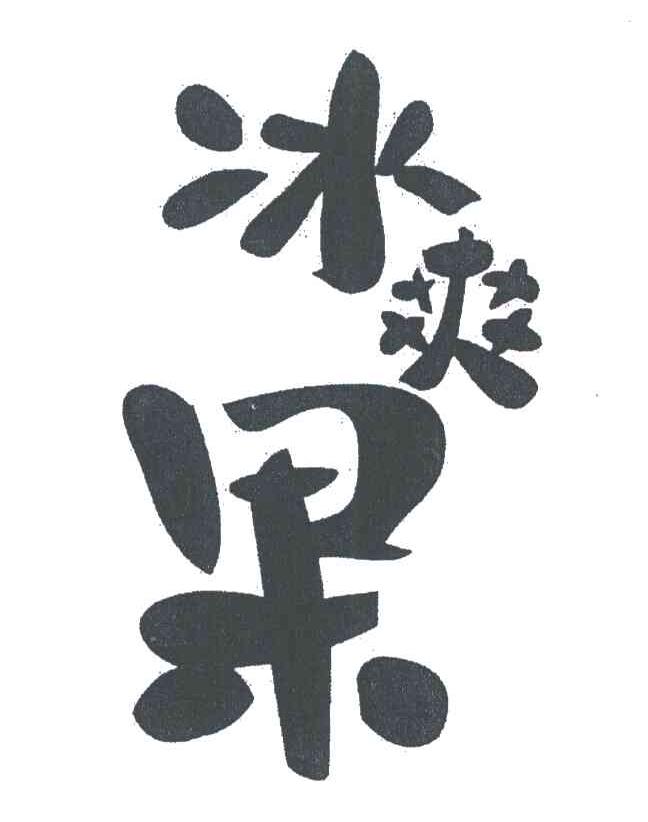 冰
爽
果